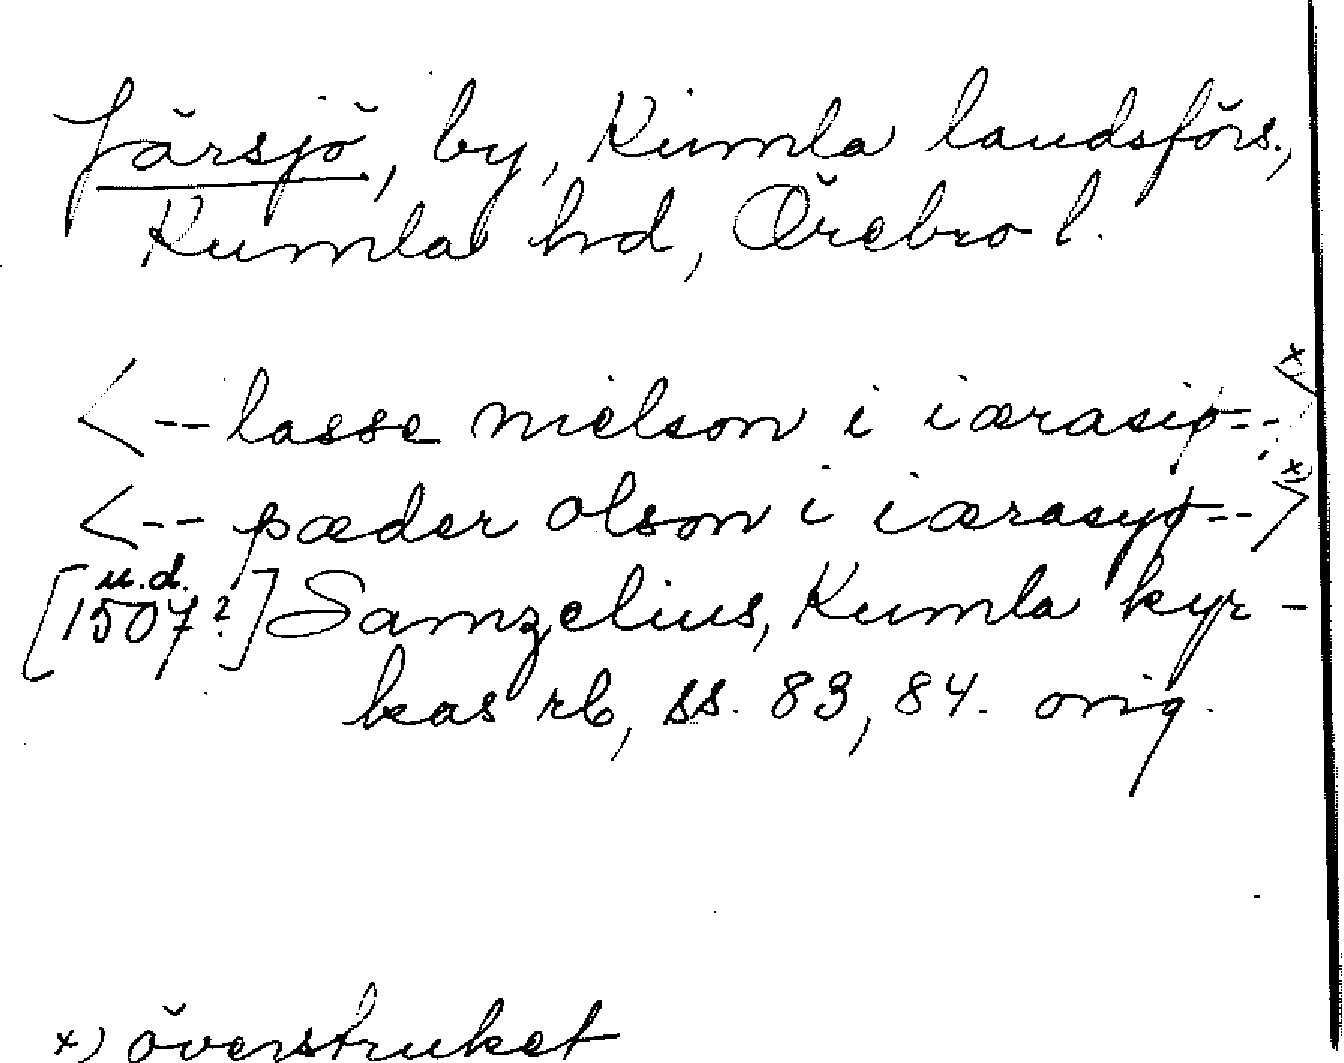 Järsjö, by, Kumla landsförs.,
Kumla hd, Örebro l.
<-- lasse nielson i iærasiø--> x)
<-- pæder olson i iærasyø--> x)
[u.d. 1507?] Samzelius, Kumla kyr-
kas rb, ss. 83, 84. orig.
x) överstruket